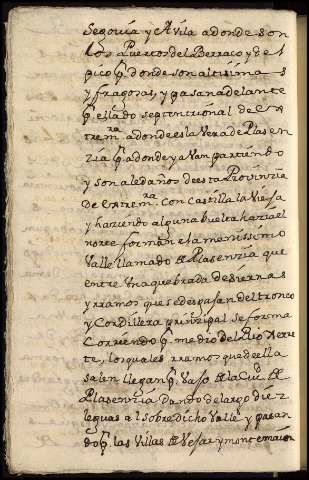 Segovia y Avila adonde son
Los Puertos del Berraco y de el
pico q̃. donde son altisimas
y fragosas, y pasan adelante
q̃. el lado septentrional de Ex
trem.ra adonde es la Vera de Plasen
zia q̃. adonde ya Van partiendo
y son aledaños de esta Provinzia
de Extrem.ra Con Castilla la Vieja
y haziendo alguna buelta hazia el
norte forman el amenissimo
Valle llamado de Plasenzia que
entre Una quebrada de sierras
y rramos que se despajan del tronco
y Cordillera prinzipal se forma
Corriendo q̃. medio del Rio Xerre
te, los quales rramos que de ella
salen llegan q̃. Vaso de la Ciu.d de
Plasenzia Dando de largo diez
leguas al sobredicho Valle y pasan
do q̃. las Villas de Vejar y montemaior